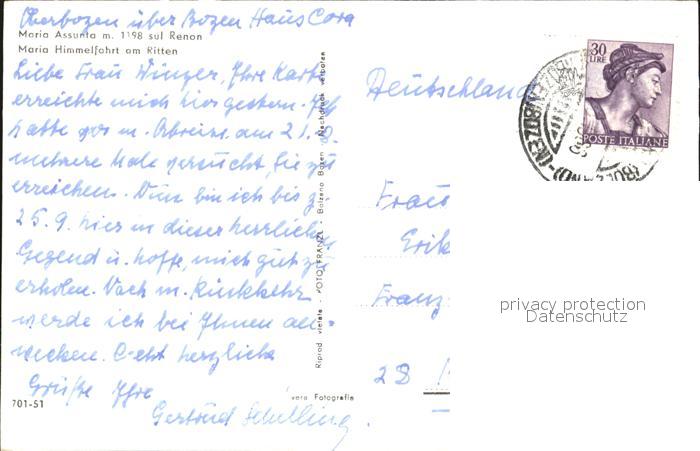 Oberbozen über Bozen Haus Cora
Maria Assunta m. 1198 sul Renon
Maria Himmelfahrt am Ritten
Liebe Frau Winzer, Ihre Karte
erreichte mich hier gestern. Ich
hatte vor m. Abreise am 21.8.
mehrere Male versucht, Sie zu
erreichen. Nun bin ich bis z.
25.9. hier in dieser herrlichen
Gegend u. hoffe, mich gut zu
erholen. Nach m. Rückkehr
werde ich bei Ihnen an-
wecken. Recht herzliche
Grüße Ihre
Gertrud Schilling.
701-51
vera Fotografia
Riprod. vietata - FOTO LFRANZL - Bolzano Bozen - Nachdruck verboten
30
LIRE
POSTE ITALIANE
(BOLZANO)
(BOZEN)
Deutschland
Frau
Erik
Franz
28
privacy protection
Datenschutz